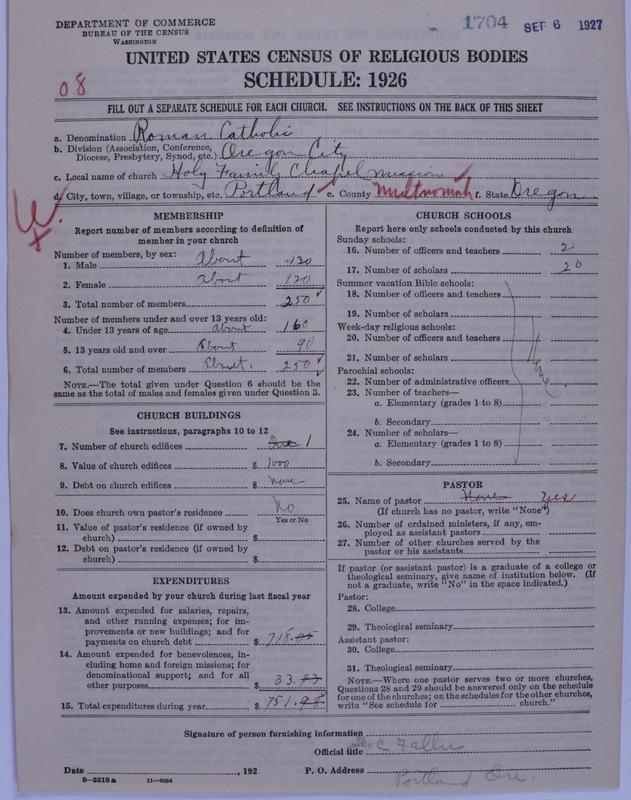 DEPARTMENT OF COMMERCE
BUREAU OF THE CENSUS
WASHINGTON
1704 SEP 6 1927
UNITED STATES CENSUS OF RELIGIOUS BODIES
SCHEDULE: 1926
08
FILL OUT A SEPARATE SCHEDULE FOR EACH CHURCH. SEE INSTRUCTIONS ON THE BACK OF THIS SHEET
a. Denomination Roman Catholic
b. Division (Association, Conference, Diocese, Presbytery, Synod, etc.) Oregon City
c. Local name of church Holy Family Chapel mission
d. City, town, village, or township, etc. Portland e. County Multnomah f. State Oregon
MEMBERSHIP
Report number of members according to definition of
member in your church
Number of members, by sex:
1. Male About 120
2. Female About 120
3. Total number of members 250
Number of members under and over 13 years old:
4. Under 13 years of age about 160
5. 13 years old and over About 90
6. Total number of members About 250
NOTE.—The total given under Question 6 should be
same as the total of males and females given under Question 3.
CHURCH BUILDINGS
See instructions, paragraphs 10 to 12
7. Number of church edifices 1
8. Value of church edifices $ 1000
9. Debt on church edifices $ none
10. Does church own pastor's residence No
Yes or No
11. Value of pastor's residence (if owned by
church) $
12. Debt on pastor's residence (if owned by
church) $
EXPENDITURES
Amount expended by your church during last fiscal year
13. Amount expended for salaries, repairs,
and other running expenses; for im-
provements or new buildings; and for
payments on church debt $ 718.
14. Amount expended for benevolences, in-
cluding home and foreign missions; for
denominational support; and for all
other purposes $ 33.
15. Total expenditures during year $ 751.
CHURCH SCHOOLS
Report here only schools conducted by this church
Sunday schools:
16. Number of officers and teachers 2
17. Number of scholars 20
Summer vacation Bible schools:
18. Number of officers and teachers
19. Number of scholars
Week-day religious schools:
20. Number of officers and teachers
21. Number of scholars
Parochial schools:
22. Number of administrative officers
23. Number of teachers—
a. Elementary (grades 1 to 8)
b. Secondary
24. Number of scholars—
a. Elementary (grades 1 to 8)
b. Secondary
PASTOR
25. Name of pastor None Yes
(If church has no pastor, write "None")
26. Number of ordained ministers, if any, em-
ployed as assistant pastors
27. Number of other churches served by the
pastor or his assistants
If pastor (or assistant pastor) is a graduate of a college or
theological seminary, give name of institution below. (If
not a graduate, write "No" in the space indicated.)
Pastor:
28. College
29. Theological seminary
Assistant pastor:
30. College
31. Theological seminary
NOTE.—Where one pastor serves two or more churches,
Questions 28 and 29 should be answered only on the schedule
for one of the churches; on the schedules for the other churches,
write "See schedule for church."
Signature of person furnishing information
Official title Geo C Faller
Date , 192 P. O. Address Portland Ore.
8—5518a 11—9034